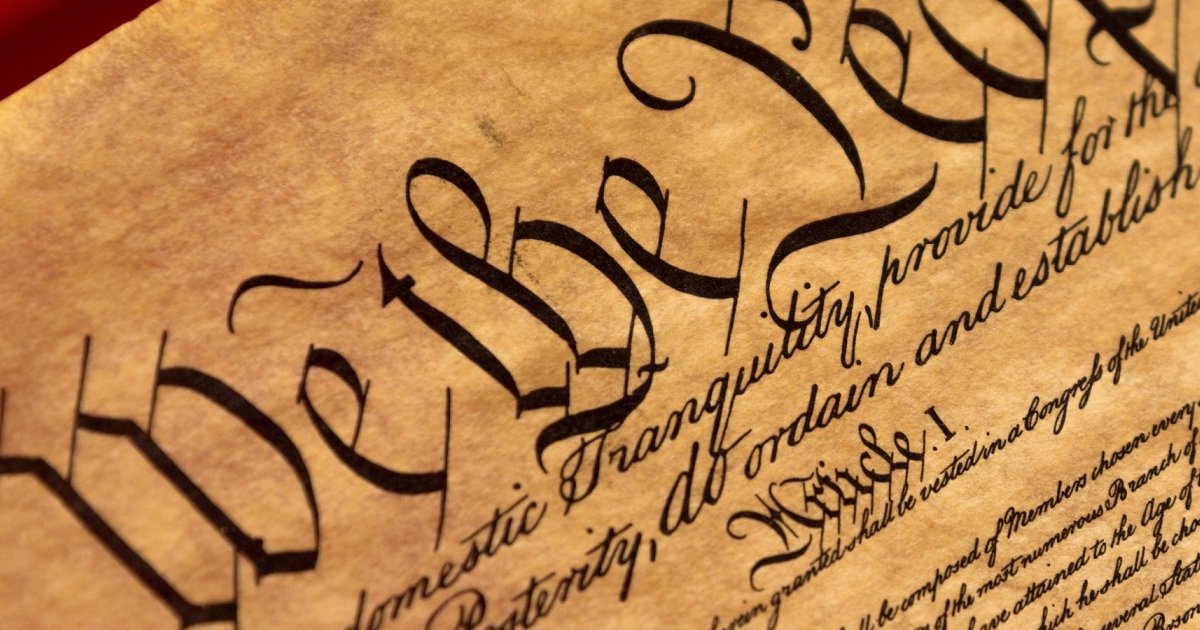 We the Peop
domestic Tranquility, provide for the
Posterity, do ordain and establish
Article. I.
herein granted shall be vested in a Congreſs of the United
ll be composed of Members chosen every
of the most numerous Branch of
have attained to the Age of
which he shall be cho
several Stat